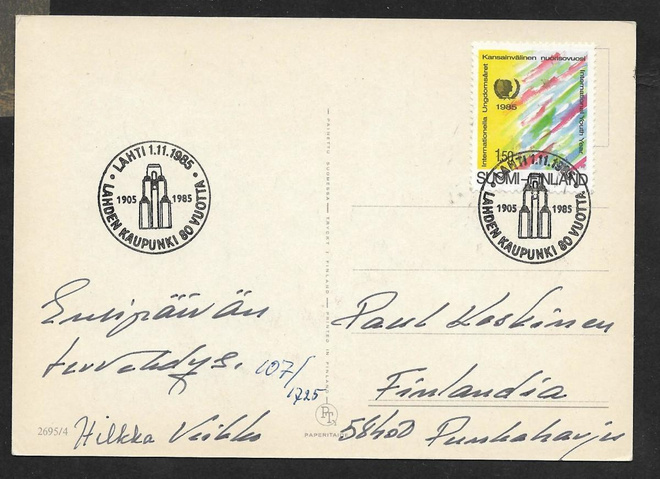 LAHTI 1.11.1985
1905 1985
LAHDEN KAUPUNKI 80 VUOTTA
Kansainvälinen nuorisovuosi
Internationella Ungdomsåret
International Youth Year
1985
1.50
SUOMI-FINLAND
LAHTI 1.11.1985
1905 1985
LAHDEN KAUPUNKI 80 VUOTTA
PAINETTU SUOMESSA — TRYCKT I FINLAND — PRINTED IN FINLAND
Ensipäivän
tervehdys.
107/
1725
Hilkka Veikko
Paul Koskinen
Finlandia
58450 Punkaharju
2695/4
PT
PAPERITAIDE